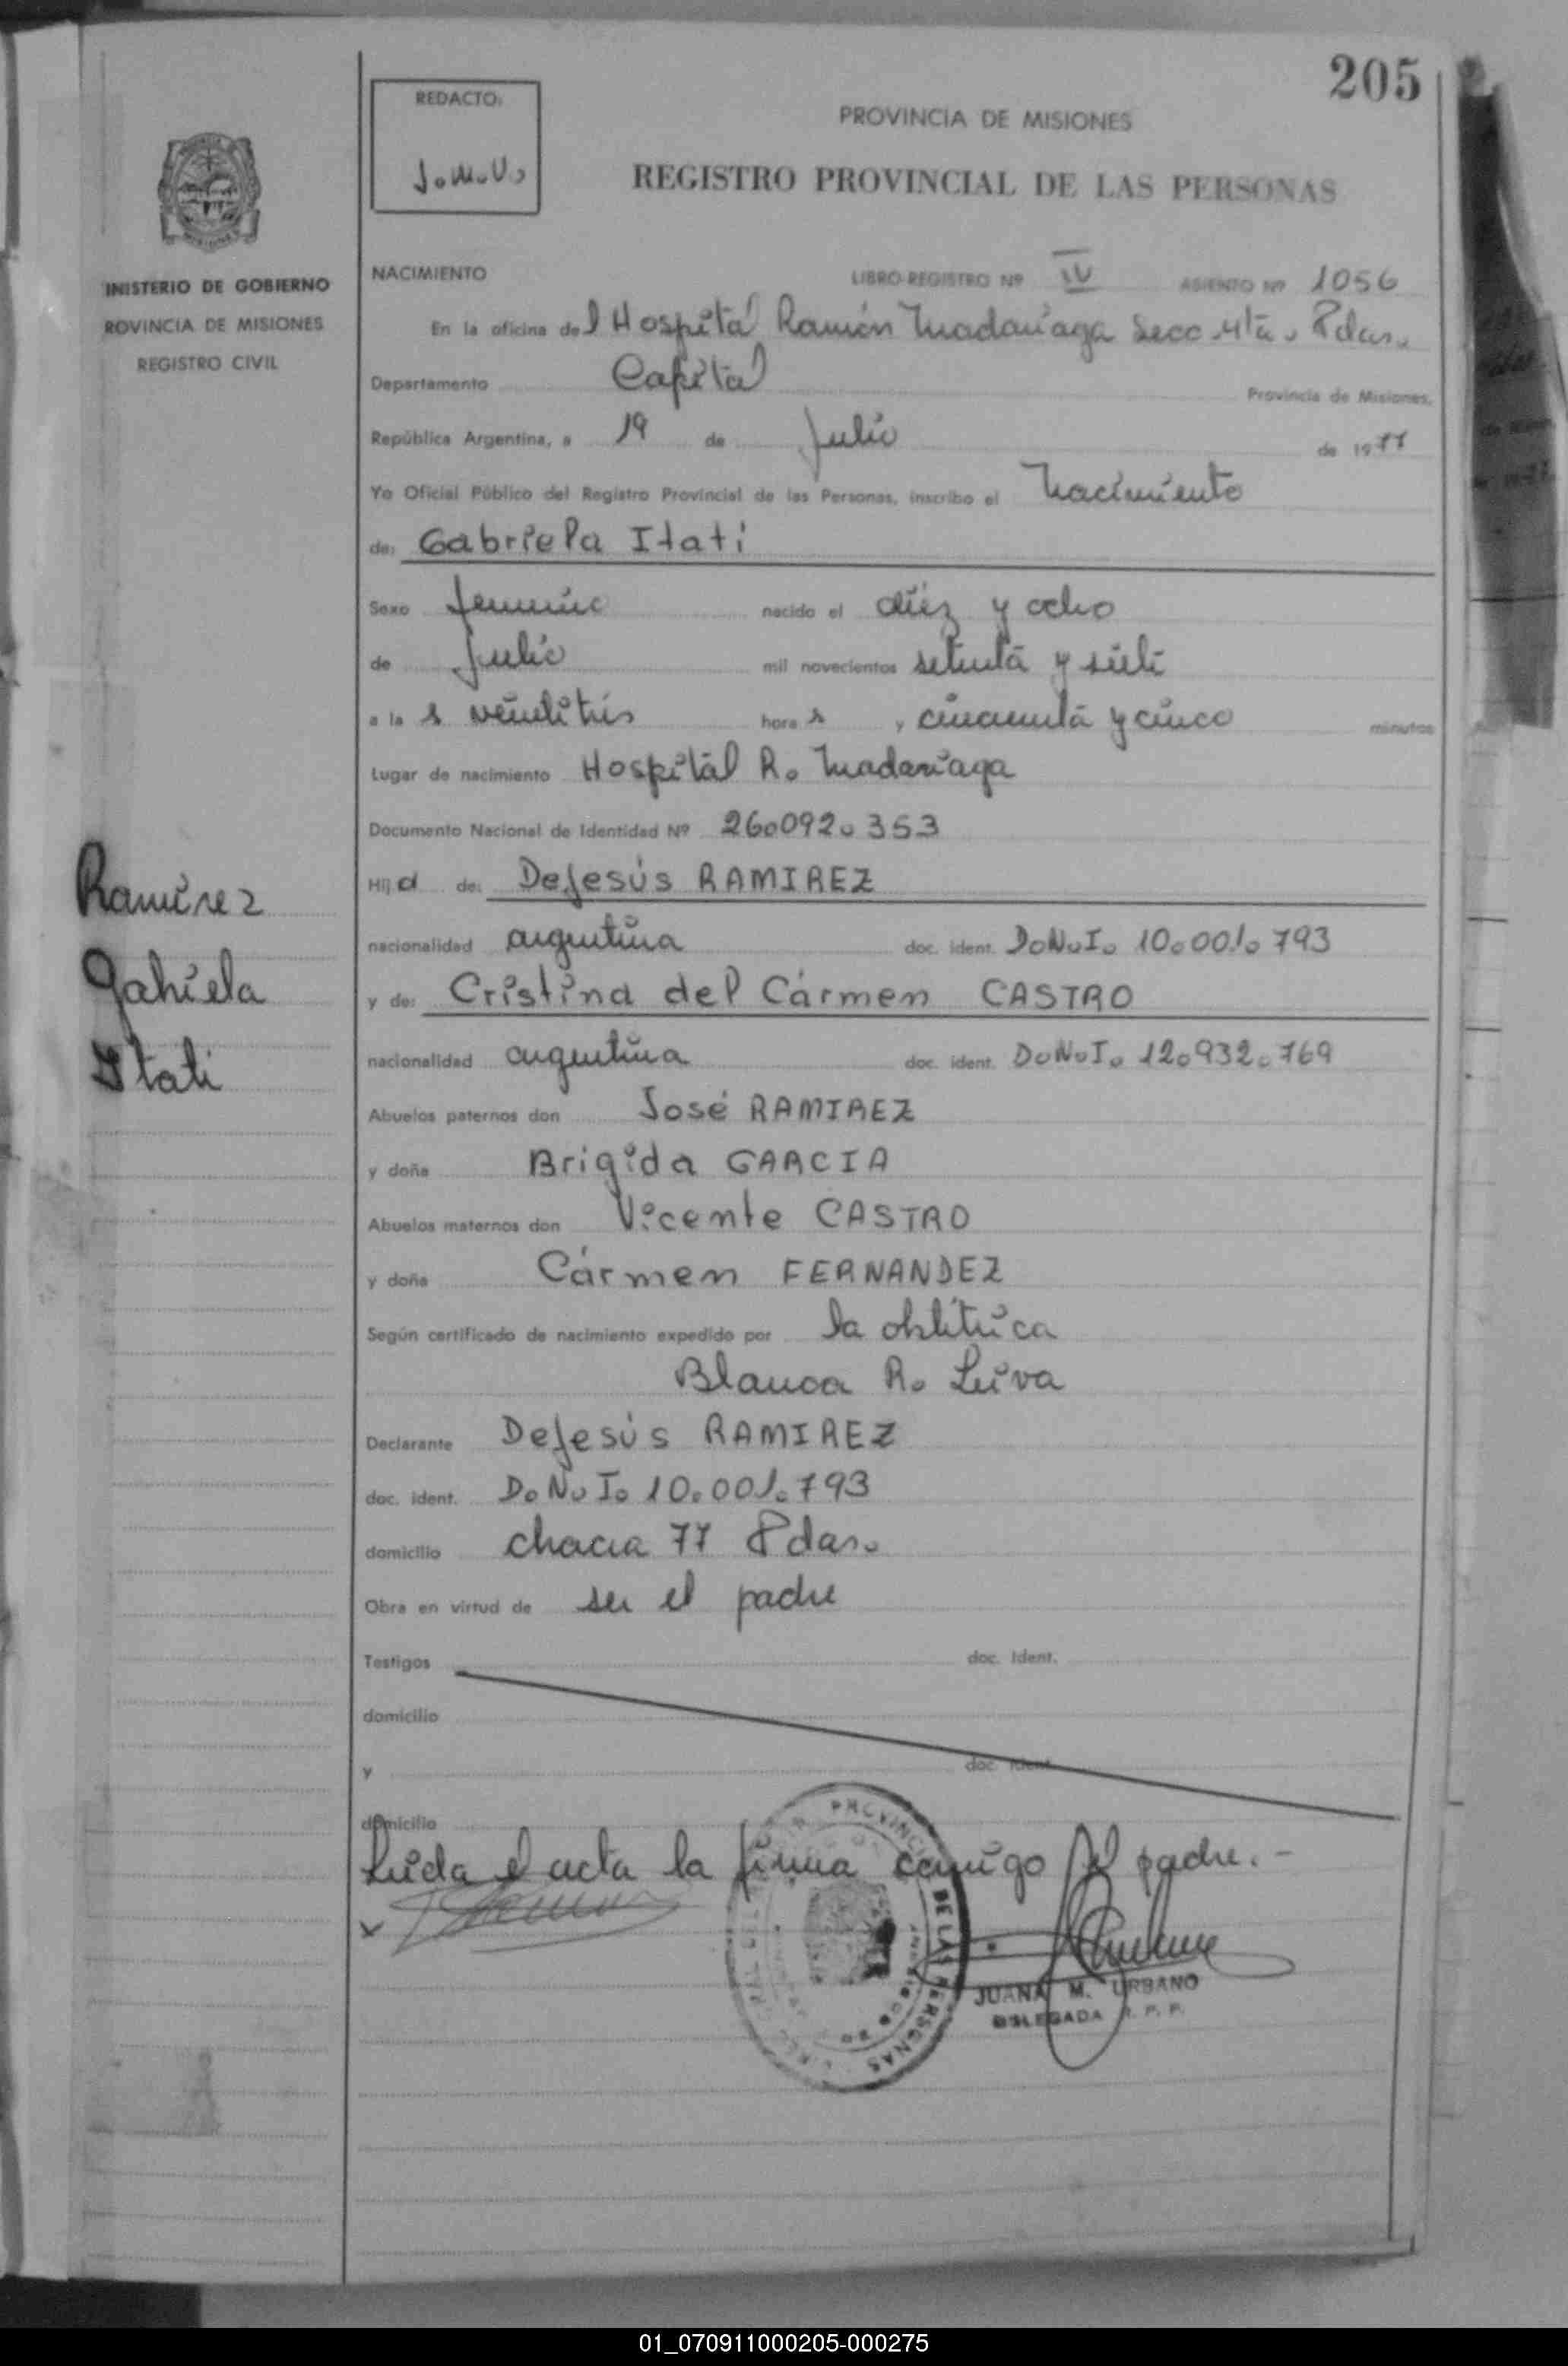 205
REDACTO:
J. M. U.
PROVINCIA DE MISIONES
REGISTRO PROVINCIAL DE LAS PERSONAS
INISTERIO DE GOBIERNO
ROVINCIA DE MISIONES
REGISTRO CIVIL
NACIMIENTO LIBRO-REGISTRO Nº IV ASIENTO Nº 1056
En la oficina del Hospital Ramón Madariaga Secc. 4ta. Pdas.
Departamento Capital Provincia de Misiones,
República Argentina, a 19 de Julio de 1977
Yo Oficial Público del Registro Provincial de las Personas, inscribo el Nacimiento
de: Gabriela Itati
Sexo femenino nacido el diez y ocho
de Julio mil novecientos setenta y siete
a la s veintitres hora s y cincuenta y cinco minutos
Lugar de nacimiento Hospital R. Madariaga
Documento Nacional de Identidad Nº 26.092.353
Hij a de: DeJesús RAMIREZ
nacionalidad argentina doc. ident. D.N.I. 10.001.793
y de: Cristina del Cármen CASTRO
nacionalidad argentina doc. ident. D.N.I. 12.932.769
Abuelos paternos don José RAMIREZ
y doña Brigida GARCIA
Abuelos maternos don Vicente CASTRO
y doña Cármen FERNANDEZ
Según certificado de nacimiento expedido por la obstétrica
Blanca R. Leiva
Declarante DeJesús RAMIREZ
doc. ident. D.N.I. 10.001.793
domicilio chacra 77 Pdas.
Obra en virtud de ser el padre
Testigos doc. ident.
domicilio
y doc. ident.
domicilio
Leida el acta la firma conmigo el padre. -
x
JUANA M. URBANO
DELEGADA R. P. P.
Ramirez
Gabriela
Itati
01_070911000205-000275